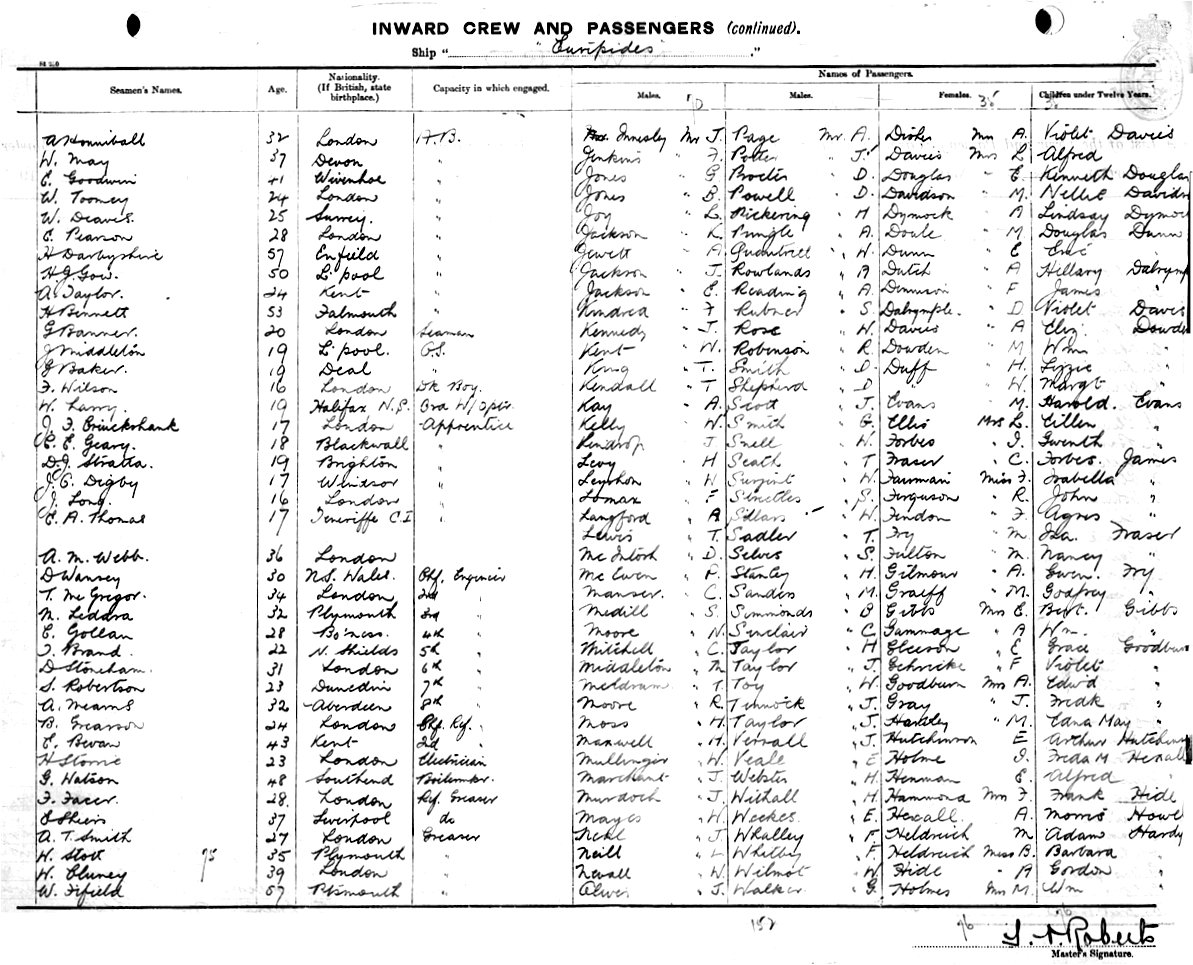 INWARD CREW AND PASSENGERS (continued).
Ship " "Euripides" "
Seamen's Names. Age. Nationality. (If British, state birthplace.) Capacity in which engaged. Names of Passengers.
Males. Males. Females. Children under Twelve Years.
A Honniball 32 London A.B. Innesley Mr J. Page Mr A. Mrs A. Violet Davies
W. May 37 Devon " Jenkins " F. Potter " J. Davies Mrs L Alfred
E. Goodwin 41 Wivenhoe " Jones " G Procter " D. Douglas " E. Kenneth Douglas
W. Toomey 24 London " Jones " B. Powell " D Davidson " M. Nellie
W. Deaves. 25 Surrey. " Joy " L. Pickering " H Dymock " A Lindsay
E. Pearson 28 London " Jackson " R. Pringle " A. Doule " M Douglas Dunn
H Darbyshire 57 Enfield " Jewett " A " W. Dunn " E Eric "
H J Gow. 50 L'pool " Jackson " J. Rowlands " A Dutch " A Hillary
A. Taylor. 24 Kent " Jackson " E. Reading " A. " F James "
H Bennett 53 Falmouth " " F Rubner " S. Dalrymple. " D. Violet Davis
G Banner. 20 London Seaman Kennedy " J. Rose " W. Davies " A Eliz.
J Middleton 19 L'pool. O.S. Kent " W. Robinson " R. Dowden " M Wm "
G Baker. 19 Deal " King " T. Smith " D. Duff " H. Lizzie "
F. Wilson 16 London Dk Boy. Kendall " T Shepherd " D " " W. Margt "
W. Larry. 19 Halifax N.S. Kay " A. Scott " J. Evans " M. Harold. Evans
J. F. Cruickshank 17 London Apprentice Kelly " W. Smith " G. Ellis Mrs L. "
C. E. Geary. 18 Blackwall " " J Snell " W. Forbes " J. Gwenth "
D. J. Stratta. 19 Brighton " Levy " H Seath " T Fraser " C. Forbes. James
J. E. Digby 17 Windsor " Leyshon " H " W. Miss F. Isabella "
J. Long. 16 London " Lomax " F " S. Ferguson " R. John "
E. A. Thomas 17 Teneriffe C.I " Langford " A Sillars " W. Findon " F. Agnes "
Lewis " T. Sadler " T. Fry " M. Isa. Fraser
A. M. Webb. 36 London Mc Intosh " D. Selvis " S. Fulton " M. Nancy "
D Wansey 30 N.S. Wales. Chf. Engineer Mc Ewen " P. Stanley " H. Gilmour " A. Gwen. Fry
T. Mc Gregor. 34 London 2nd " Manser " C. Sanders " M. Graeff " M. Godfrey "
M. Liddara 32 Plymouth 3rd " Medill " S. Simmonds " B Gibbs Mrs E. Bert. Gibbs
E. Gollan 28 Bo'ness. 4th " Moore " N. Sinclair " C Gammage " A Wm. "
T. Brand. 22 N. Shields 5th " Mitchell " C. Taylor " H Gleeson " E Grace Goodburn
D Stoneham. 31 London 6th " Middleton " M Taylor " J. Gehricke " F Violet "
S. Robertson 23 Dunedin 7th " Meldrum " T. Toy " W. Goodburn Mrs A. Edwd "
A. Mearns 32 Aberdeen 8th " Moore " R. Tinnock " J. Gray " J. Fredk "
B. Grearson 24 London Chf. Ref. " Moss " H. Taylor " J. Hartley " M. Edna May "
E. Bevan 43 Kent 2nd " Maxwell " H. Versall " J. Hutchinson E Arthur
H Storrie 23 London Electrician Mullinger " W. Veale " E Holme " J. Freda M Hexall
G. Watson 48 Southend Boilermkr. Marchant " J. Webster " H. Henman " E. Alfred "
F. Facer. 28. London Ref. Greaser Murdoch " J. Withall " H. Hammond Mrs F. Frank Hide
37 Liverpool do Mayes " H. Weekes " E. Hexall. " A. Morris Howe
A. T. Smith 27 London Greaser " J Whalley " F Heldreich " M. Adam Hardy
W. Stott 95 35 Plymouth " Neill " L Whitby " F. Heldreich Miss B. Barbara "
W. Cluney 39 London " Newall " W Wilmot " W Hide " A Gordon "
W. Fifield 57 Plymouth " Oliver " J. Walker " G. Holmes Mrs M. Wm "
152 96 96
Roberts
Master's Signature.